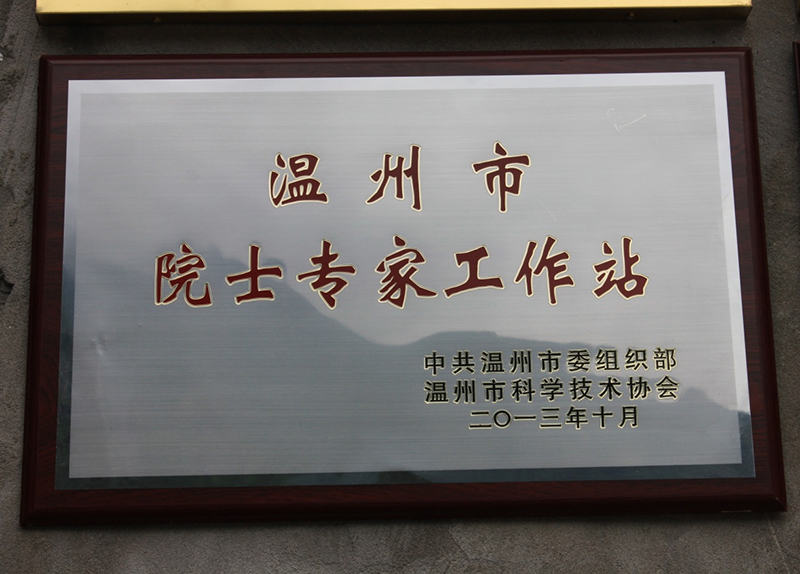 温州市
院士专家工作站
中共温州市委组织部
温州市科学技术协会
二〇一三年十月